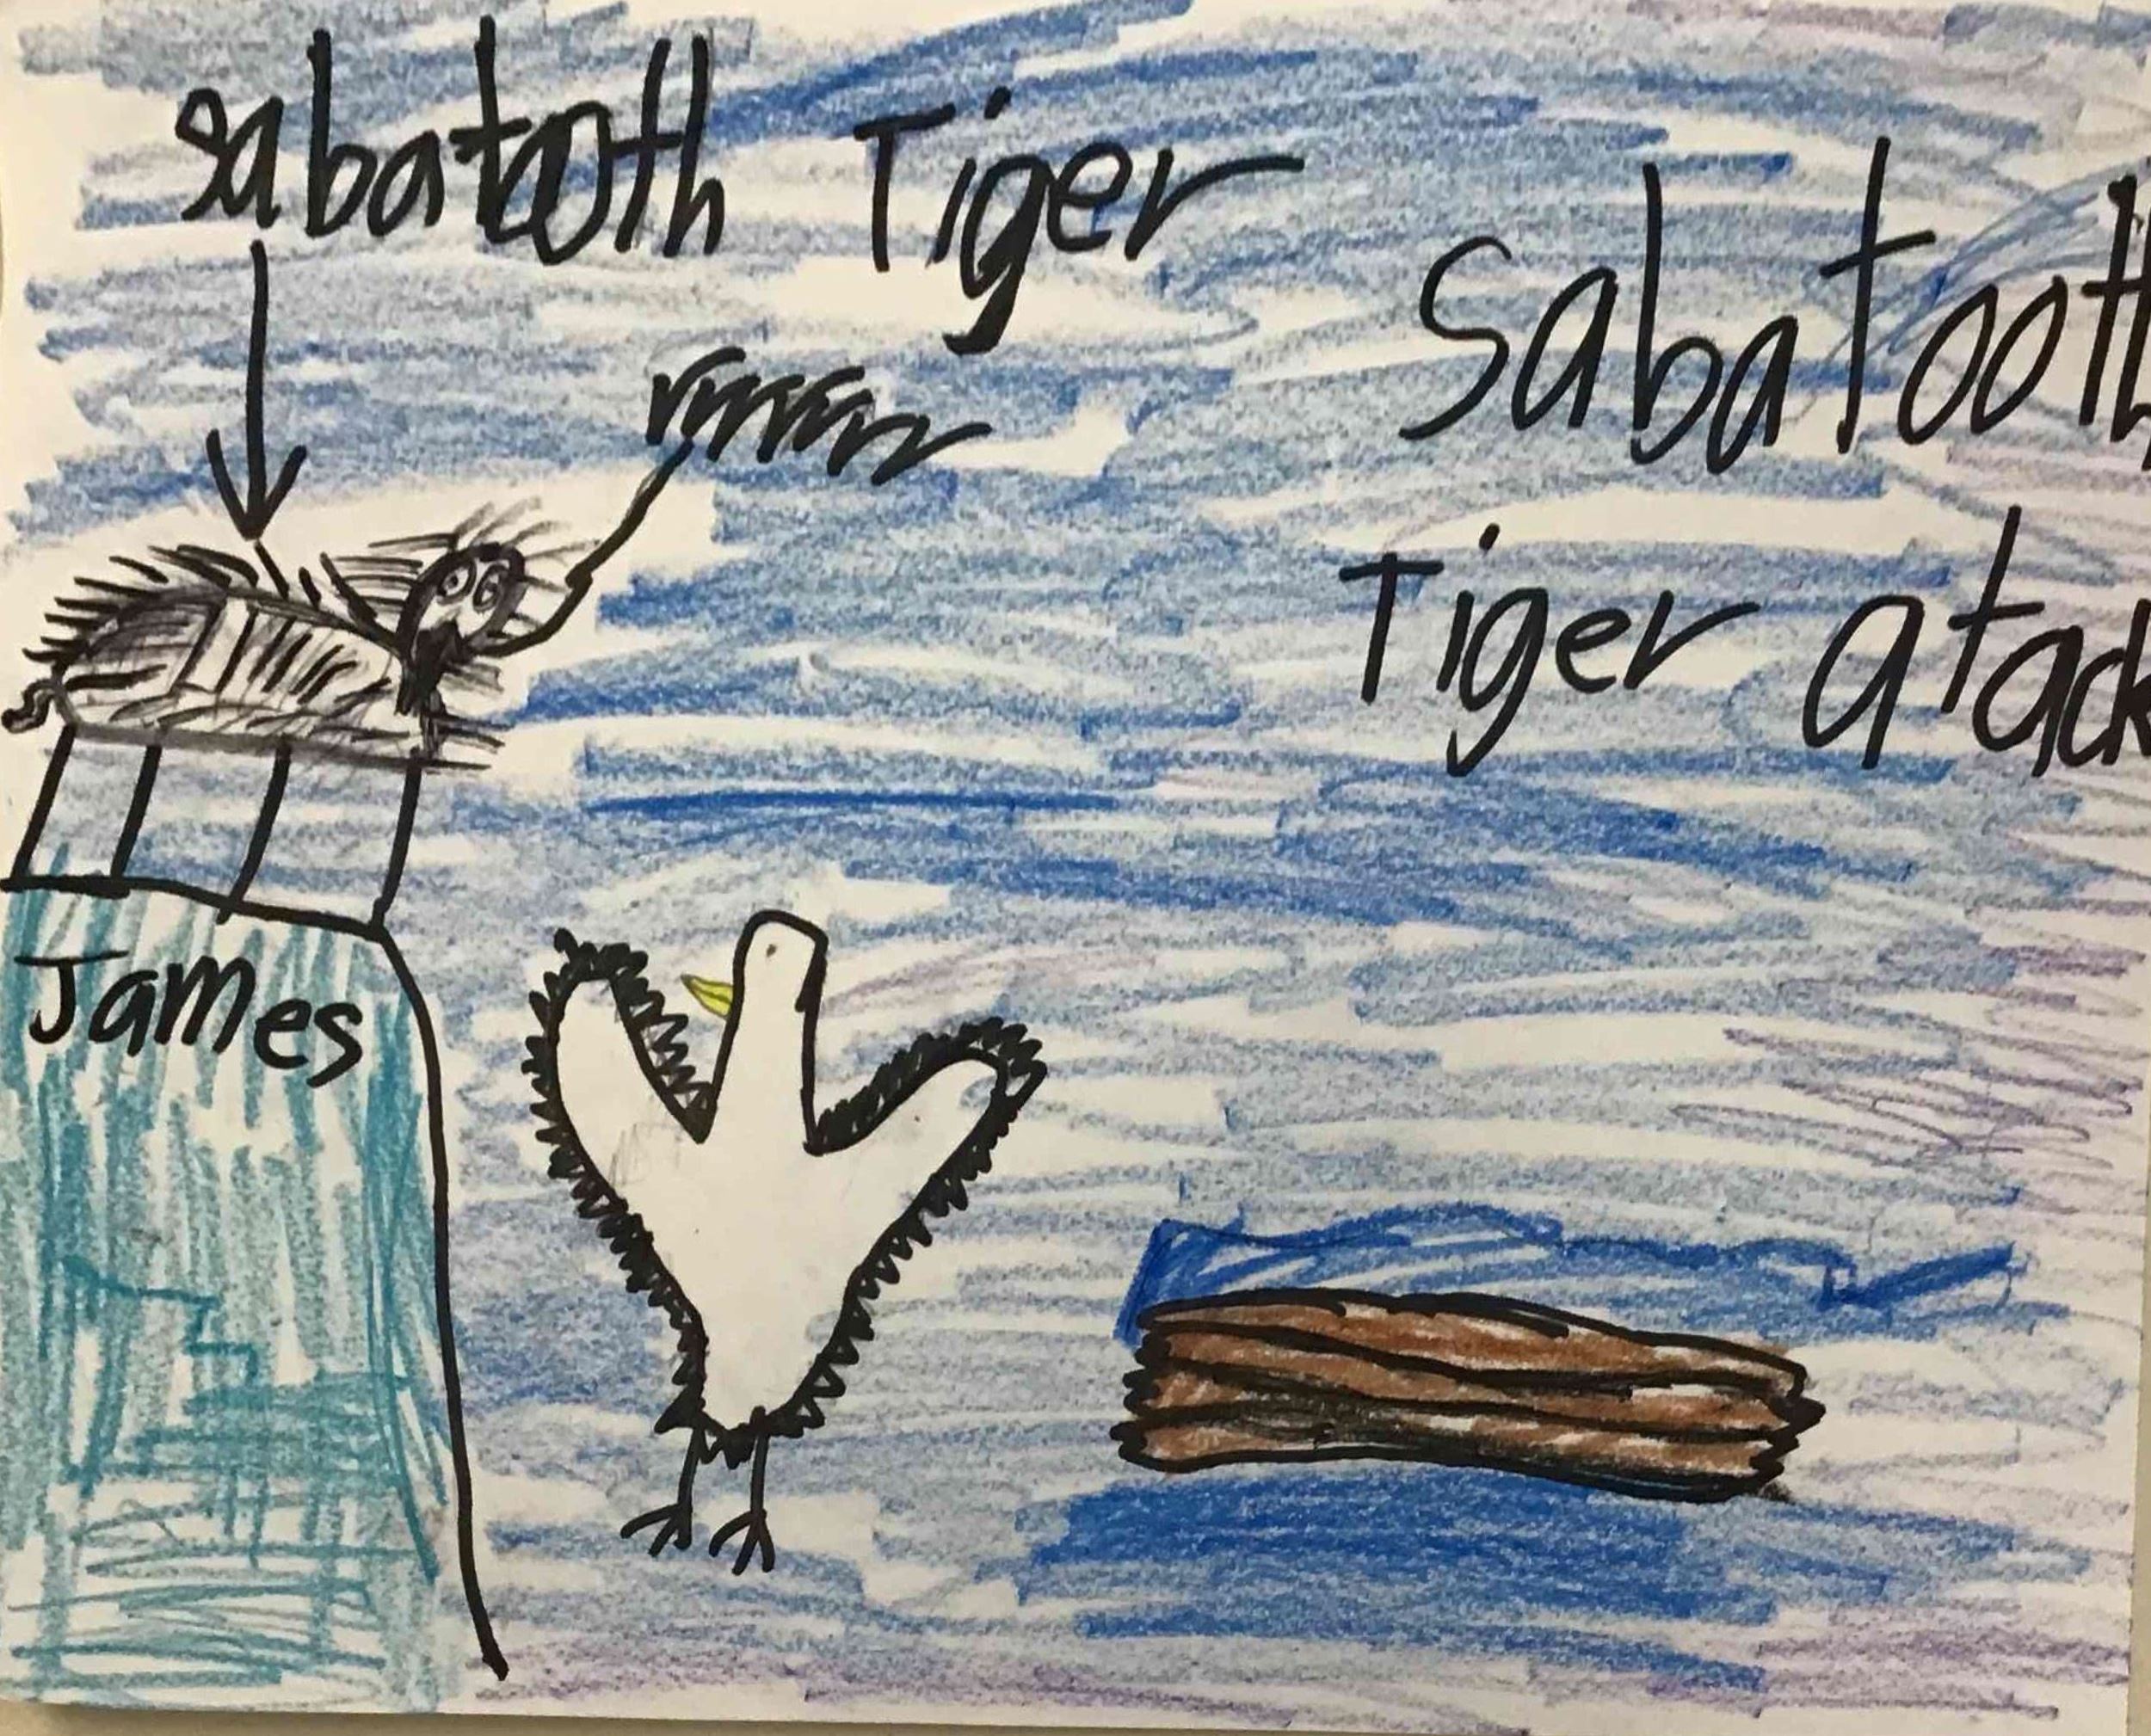 sabatooth Tiger
Sabatooth
Tiger atack
rrrrrrr
James